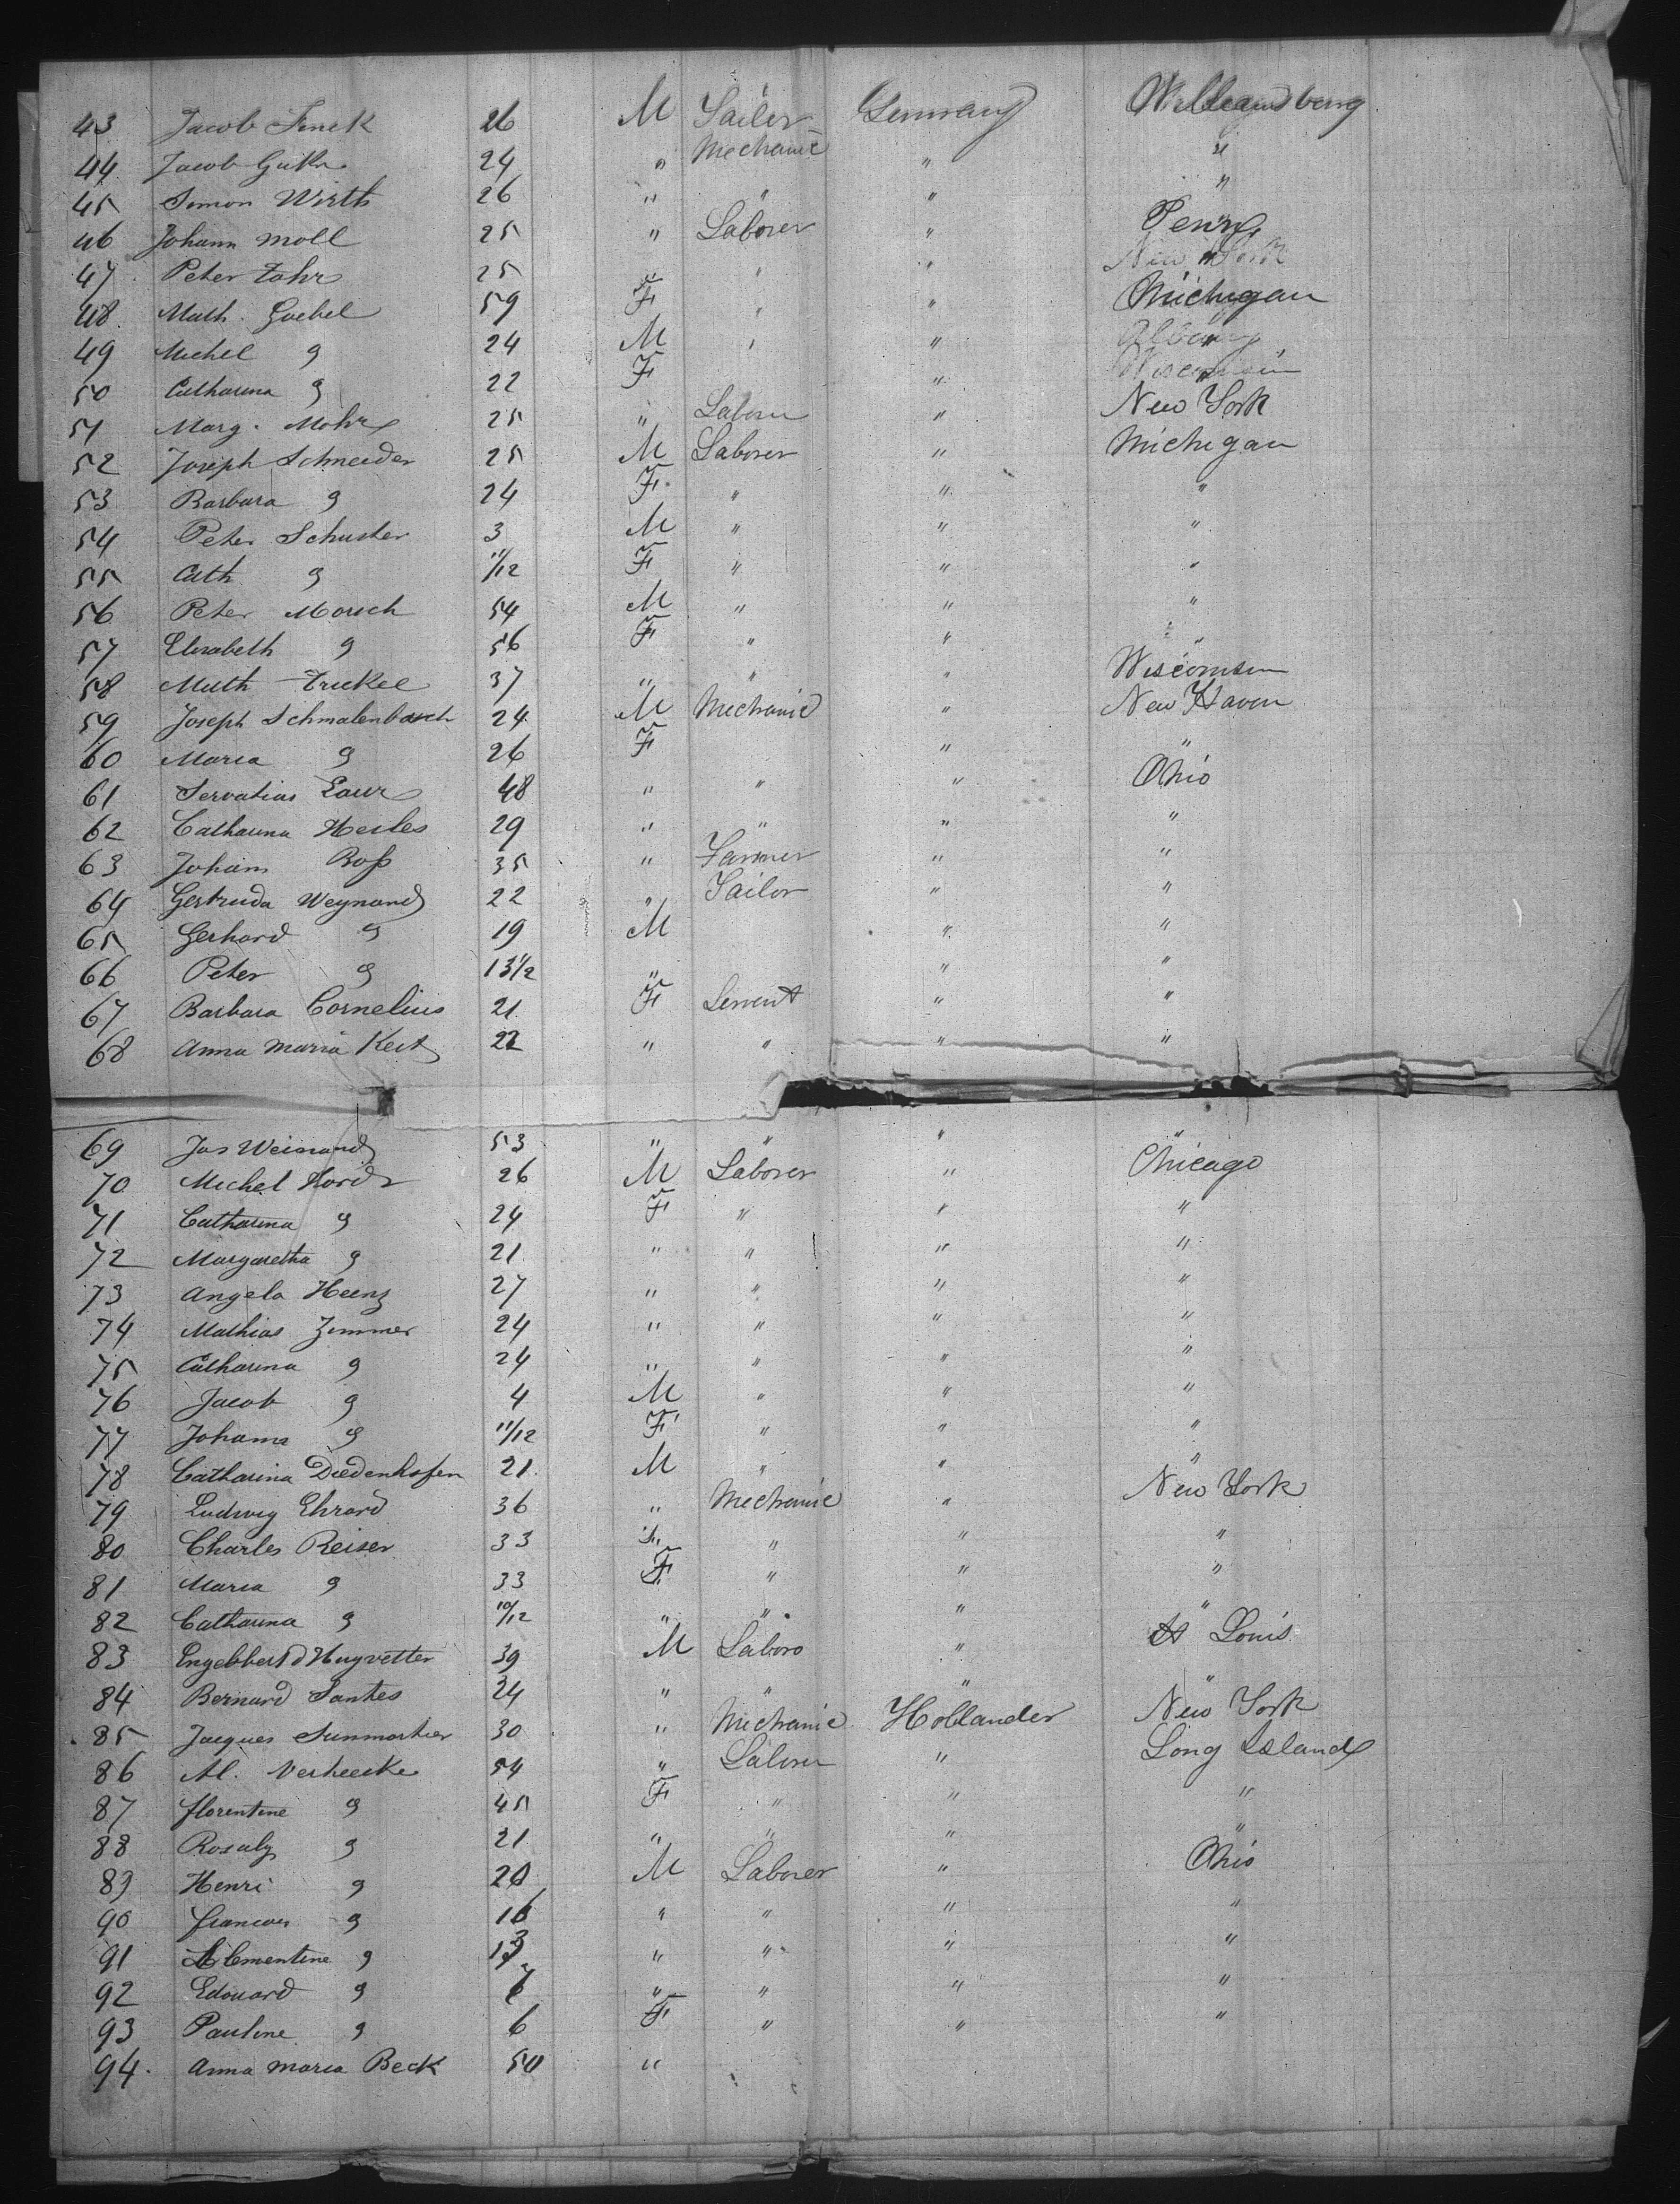 43 Jacob Finck 26 M Sailor Germany Williamsburg
44 Jacob 24 " Mechanic " "
45 Simon Wirth 26 " " " "
46 Johann Moll 25 " Laborer " Penns
47 Peter Fohr 25 " " " New York
48 Math. Goebel 59 F " " Michigan
49 Michel 9 24 M " " Albany
50 Catharina 9 22 F " Wisconsin
51 Marg. Mohr 25 " Laborer " New York
52 Joseph Schneider 25 M Laborer " Michigan
53 Barbara 9 24 F " " "
54 Peter Schuster 3 M " " "
55 Cath 9 11/12 F " " "
56 Peter Morsch 54 M " " "
57 Elisabeth 9 56 F " " "
58 Math Frickel 37 " " " Wisconsin
59 Joseph Schmalenbach 24 M Mechanic " New Haven
60 Maria 9 26 F " "
61 Servatius Laux 48 " " " Ohio
62 Catharina Herles 29 " " " "
63 Johann Boß 35 " Farmer " "
64 Gertruda Weynand 22 " Sailor " "
65 Gerhard 9 19 M " "
66 Peter 9 13 1/2 " " "
67 Barbara Cornelius 21 F Servent " "
68 Anna Maria Keit 22 " " " "
69 Jos Weinand 53 " " " "
70 Michel 26 M Laborer " Chicago
71 Catharina 9 24 F " " "
72 Margaretha 9 21 " " " "
73 Angela Heinz 27 " " " "
74 Mathias Zimmer 24 " " " "
75 Catharina 9 24 " " " "
76 Jacob 9 4 M " " "
77 Johanna 9 11/12 F " " "
78 Catharina Diedenhofen 21 M " " "
79 Ludwig Ehrard 36 " Mechanic " New York
80 Charles Reiser 33 " " " "
81 Maria 9 33 F " " "
82 Catharina 9 10/12 " " " "
83 Engelbert d Huyvetter 39 M Laboro " St Louis
84 Bernard Santes 24 " " " "
85 Jacques Sunmartier 30 " Mechanic Hollander New York
86 Al. Verheecke 54 " Laborer " Long Island
87 florentine 9 45 F " " "
88 Rosaly 9 21 " " " "
89 Henri 9 20 M Laborer " Ohio
90 francois 9 16 " " " "
91 Clementine 9 13 " " " "
92 Edouard 9 7 " " " "
93 Pauline 9 6 F " " "
94. Anna Maria Beck 50 "